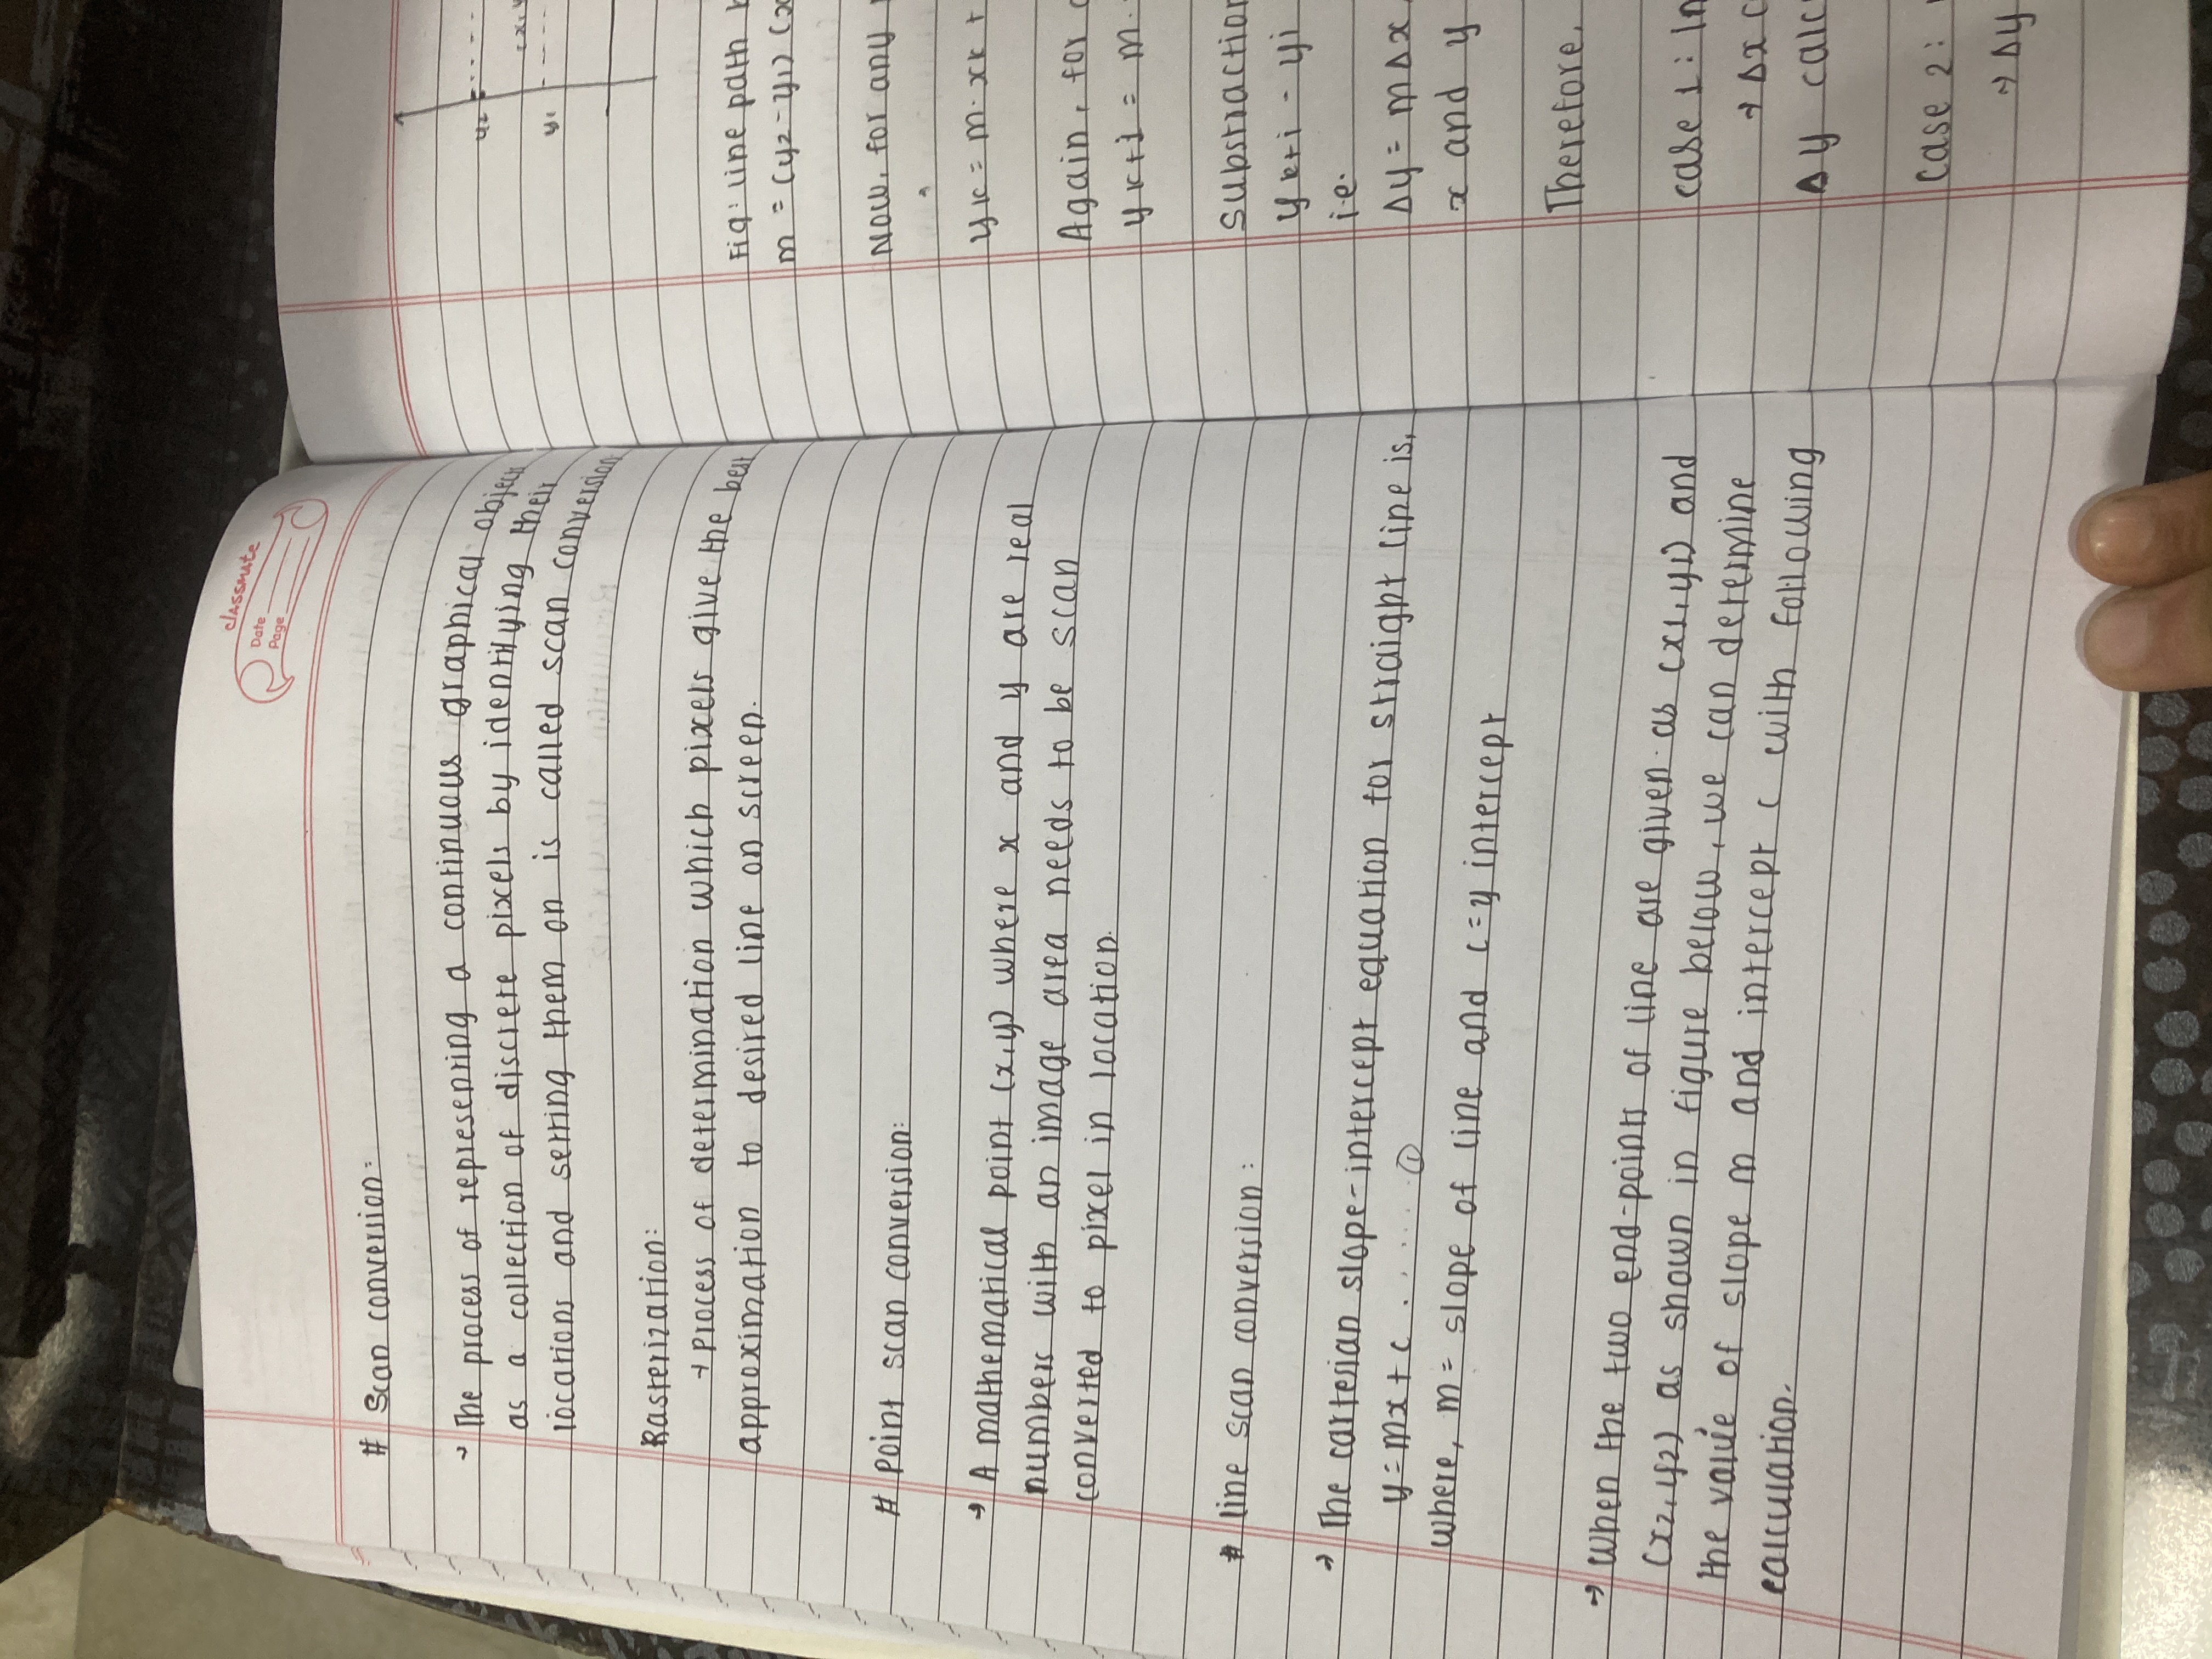 classmate
Date
Page
# Scan conversion:
→ The process of representing a continuous graphical object
as a collection of discrete pixels by identifying their
locations and setting them on is called scan conversion.
Rasterization:
→ Process of determination which pixels give the best
approximation to desired line on screen.
# point scan conversion:
→ A mathematical point (x,y) where x and y are real
numbers with an image area needs to be scan
converted to pixel in location.
# line scan conversion:
→ The cartesian slope-intercept equation for straight line is,
y = mx + c . . . . . . ①
where, m = slope of line and c = y intercept
→ When the two end-points of line are given as (x1, y1) and
(x2, y2) as shown in figure below, we can determine
the value of slope m and intercept c with following
calculation.
y2
y1
Fig: line path
m = (y2 - y1)
Now, for any
yk = m. xk +
Again, for
yk+1 = m.
Substraction
yk+i - yi
i.e.
Δy = mΔx
x and y
Therefore,
case 1:
→ Δx
Δy calc
case 2:
→ Δy